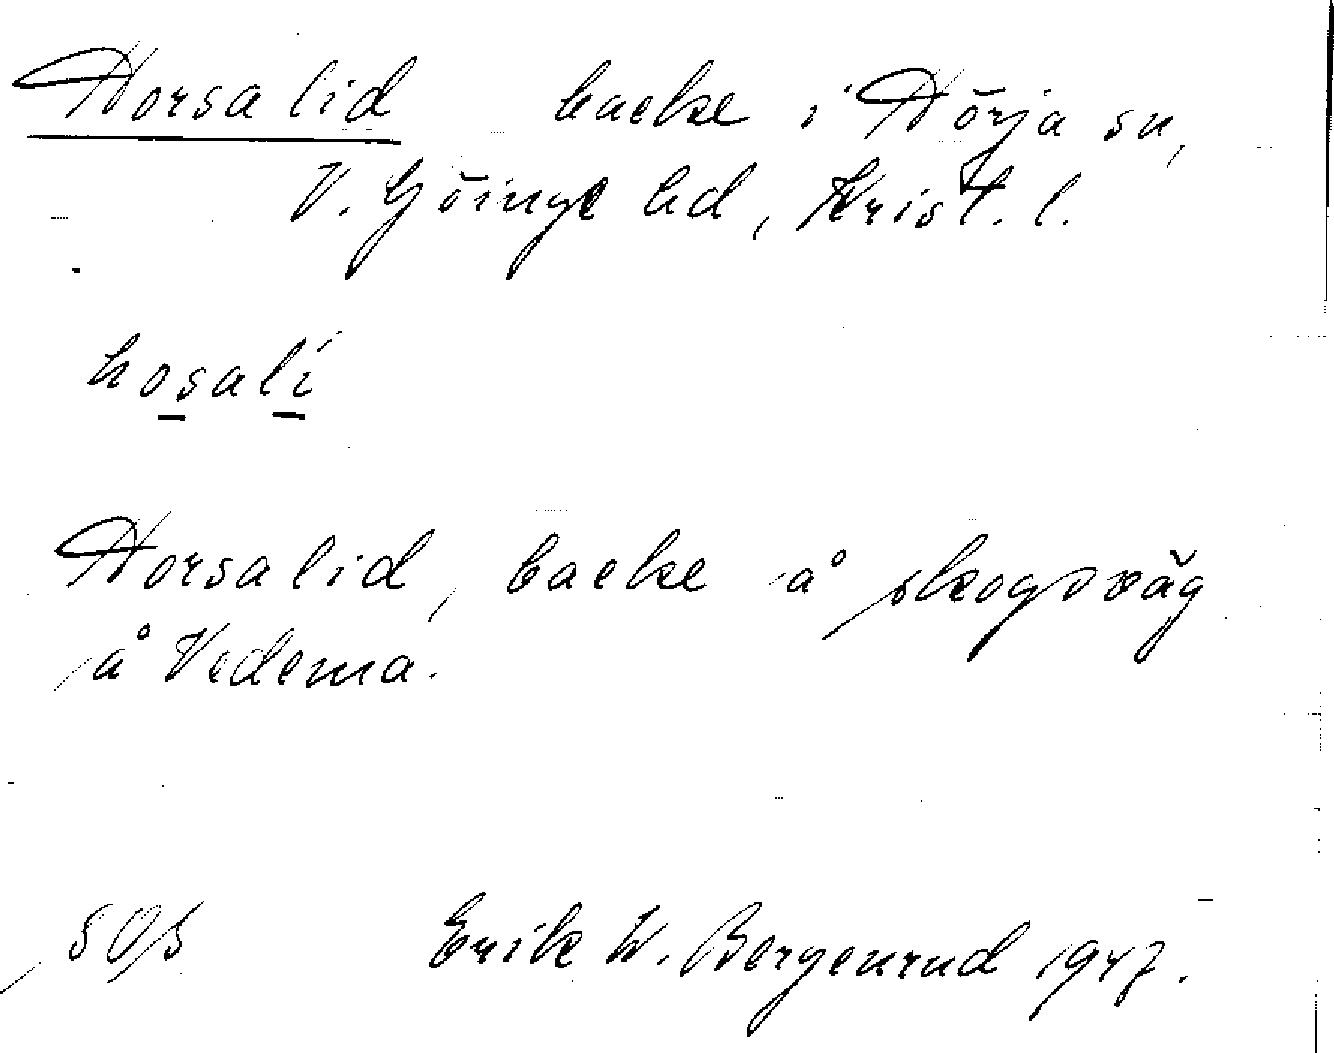 Horsalid backe i Hörja sn,
V. Göinge hd, Krist. l.
hosalí
Horsalid, backe å skogsväg
å Vedema.
SOS Erik W. Bergenrud 1947.